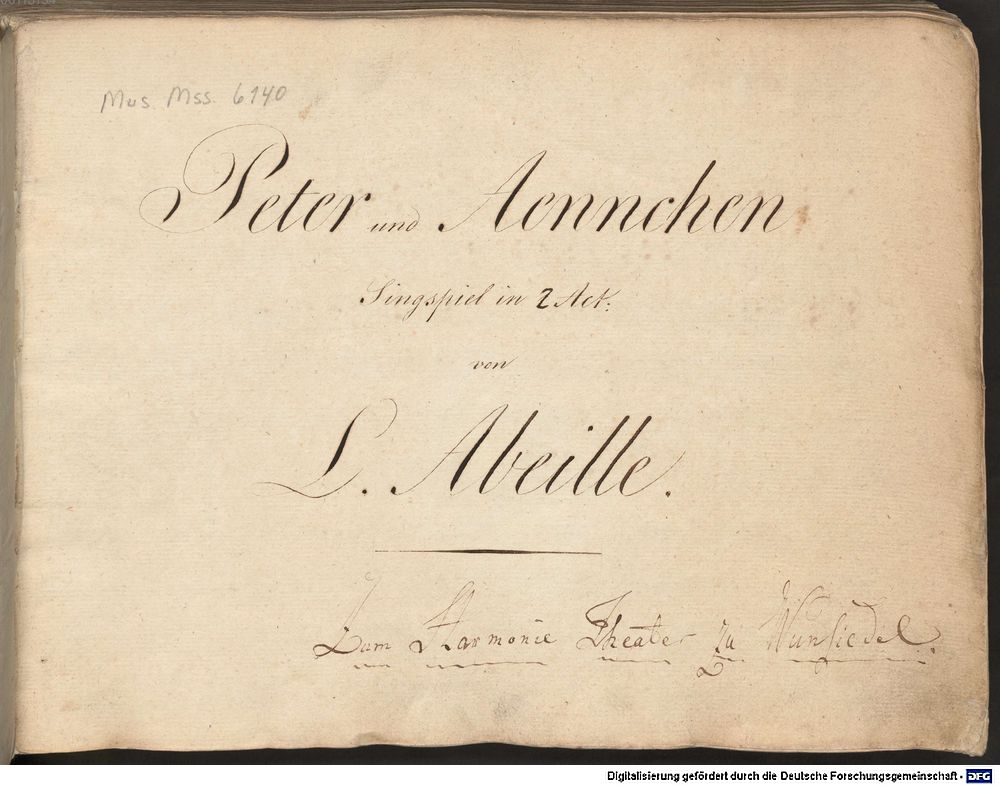 Mus. Mss. 6140
Peter und Aennchen
Singspiel in 2 Act.
von
L. Abeille.
Zum Harmonie Theater zu Wunsiedel.
Digitalisierung gefördert durch die Deutsche Forschungsgemeinschaft - DFG